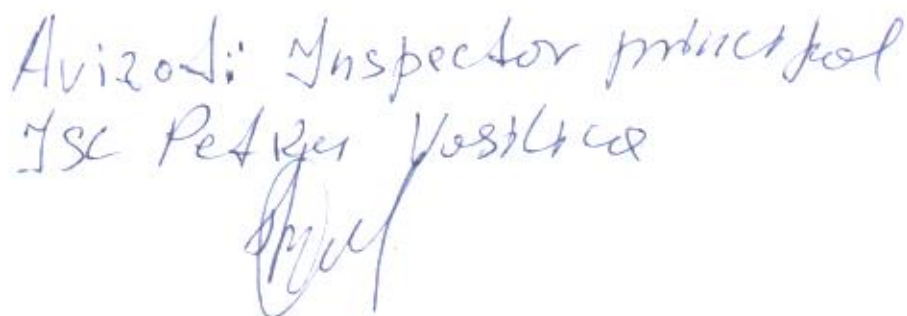 Avizat: Inspector principal
ISC Petru Vasilica